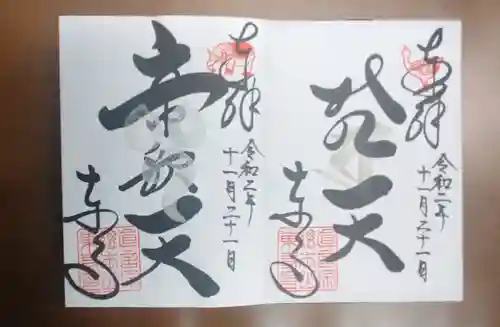 奉拝
令和二年
十一月二十一日
梵天
東寺
奉拝
令和二年
十一月二十一日
帝釈天
東寺